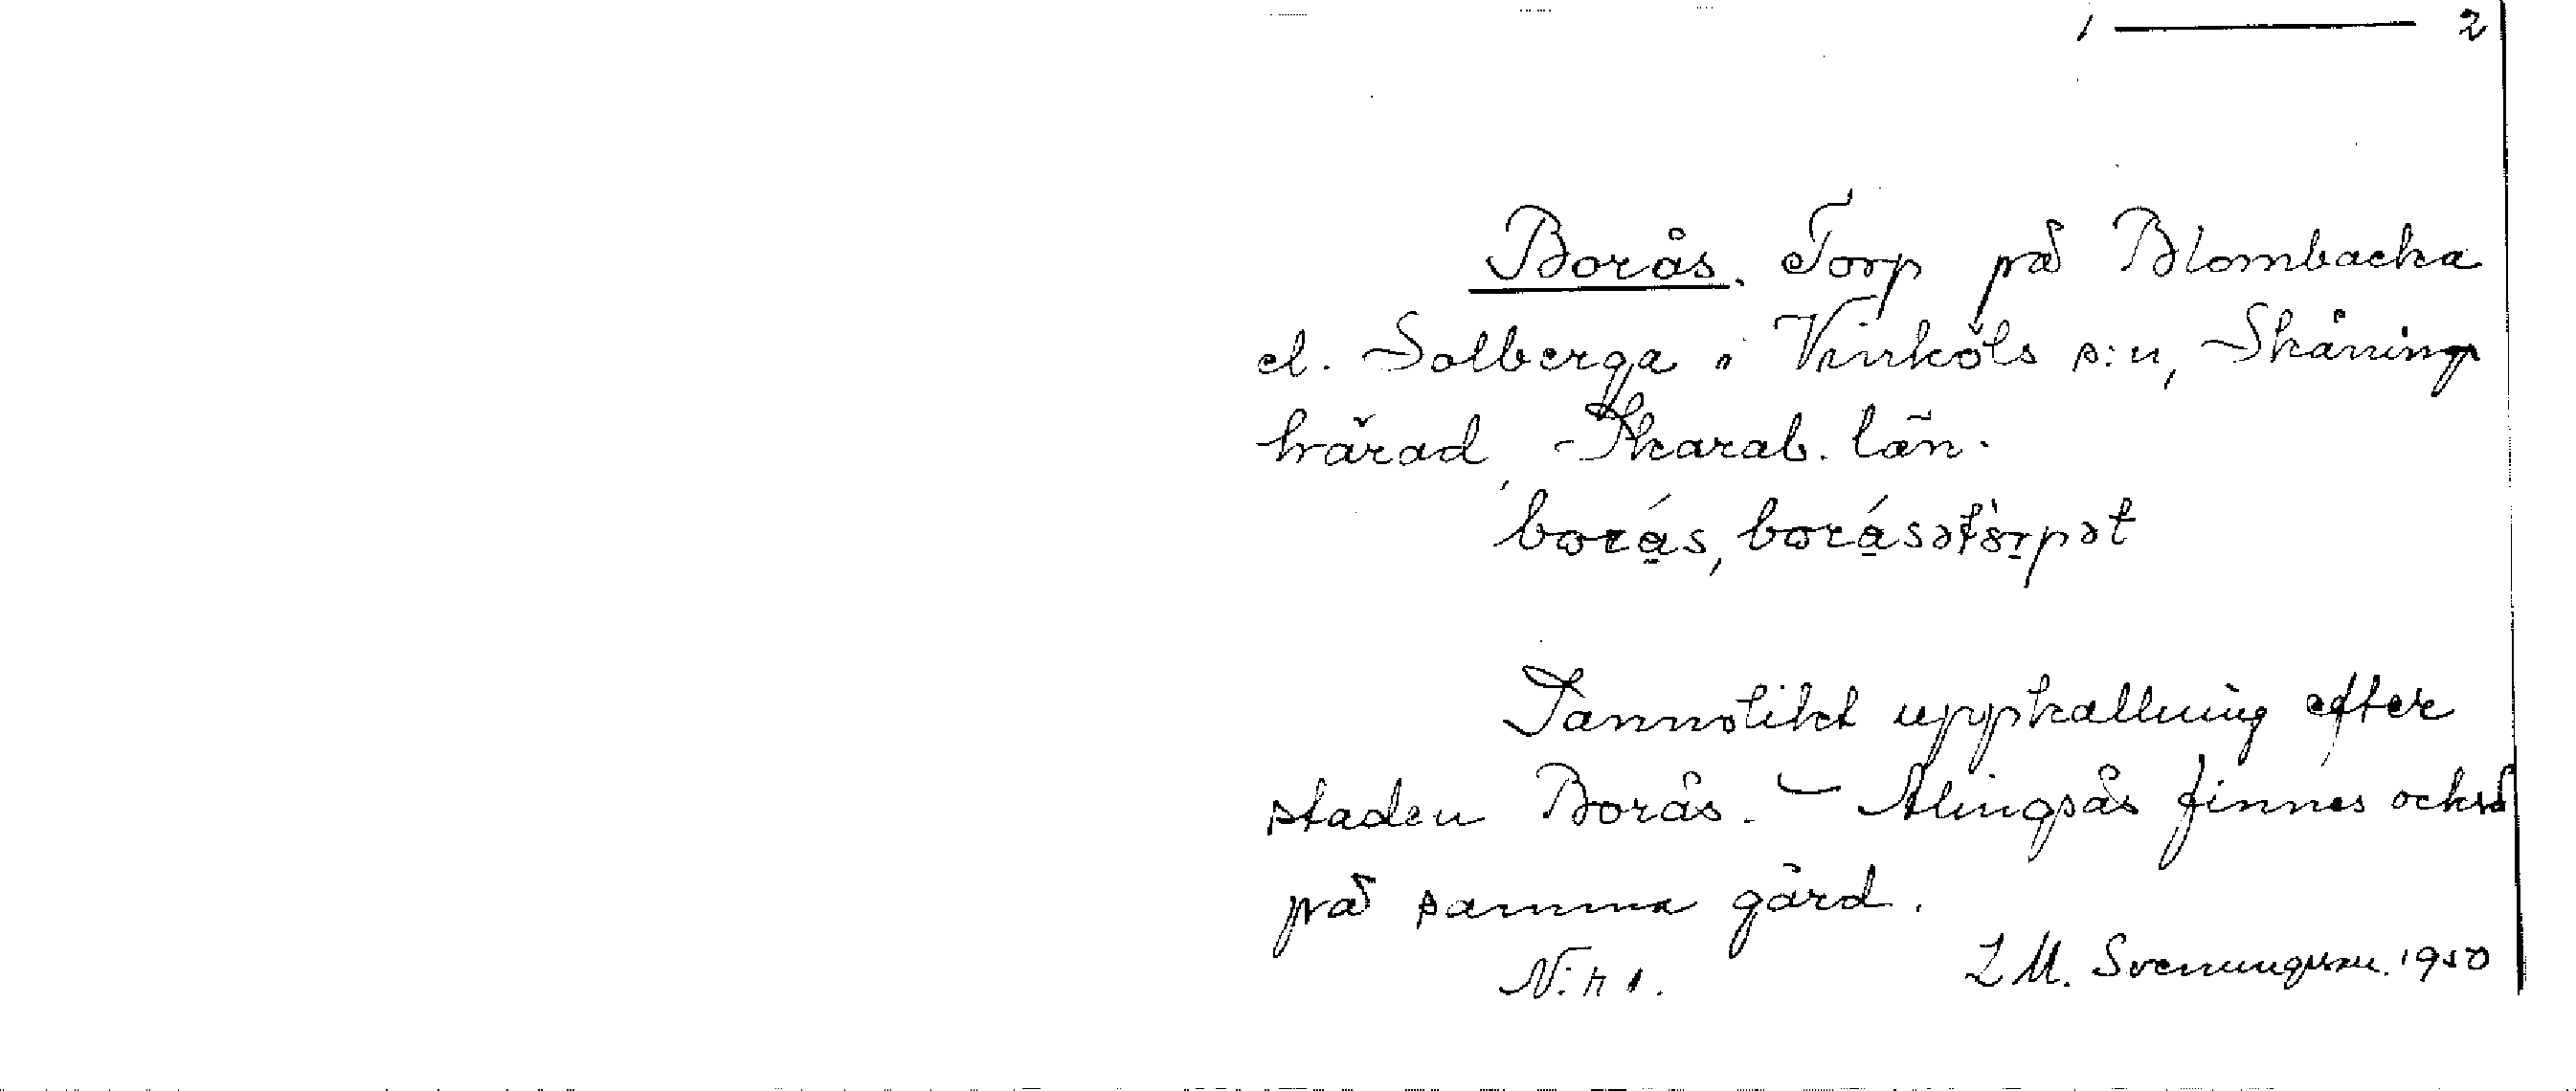 1 — 2
Borås. Torp på Blombacka
el. Solberga i Vinköls s:n, Skånings
härad, Skarab. län.
borás, borásətòrpət
Sannolikt uppkallning efter
staden Borås. – Alingsås finnes också
på samma gård.
L M. Svenungsson. 1950